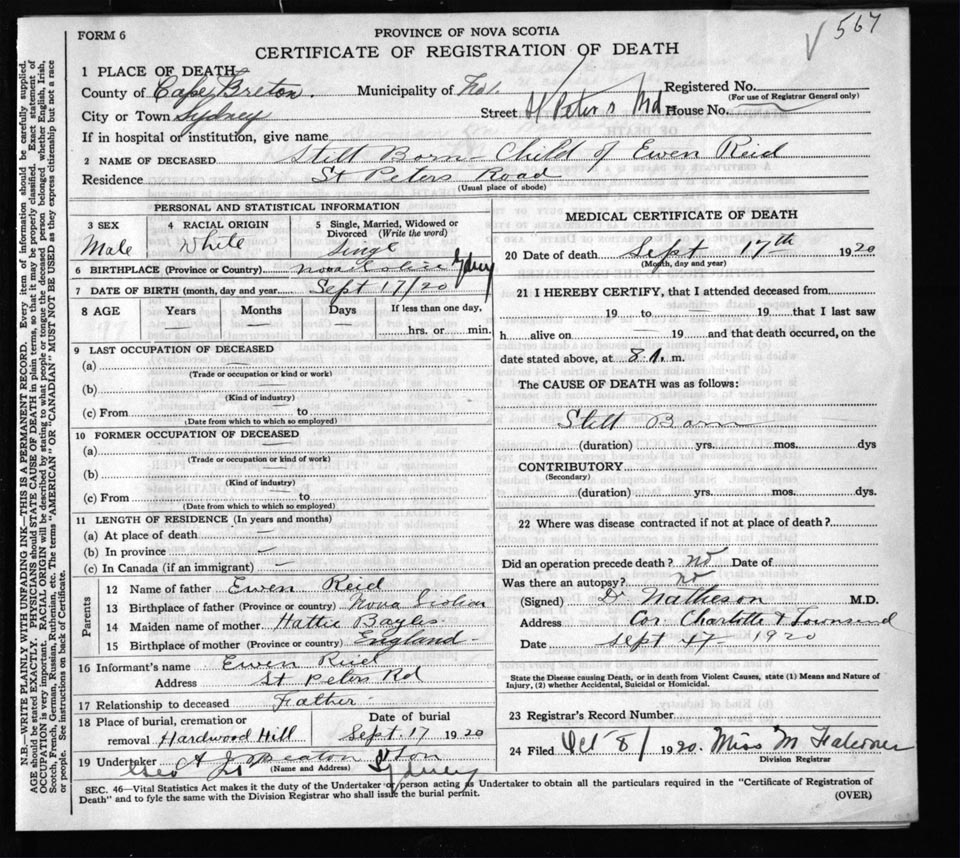 FORM 6
PROVINCE OF NOVA SCOTIA
567
CERTIFICATE OF REGISTRATION OF DEATH
1 PLACE OF DEATH
County of Cape Breton. Municipality of Registered No.
(For use of Registrar General only)
City or Town Sydney Street St Peters Rd House No.
If in hospital or institution, give name
2 NAME OF DECEASED Still Born Child of Ewen Reid
Residence St Peters Road
(Usual place of abode)
PERSONAL AND STATISTICAL INFORMATION
3 SEX 4 RACIAL ORIGIN 5 Single, Married, Widowed or Divorced (Write the word)
Male White Singl
6 BIRTHPLACE (Province or Country) Sydney
7 DATE OF BIRTH (month, day and year) Sept 17/20
8 AGE Years Months Days If less than one day,
hrs. or min.
9 LAST OCCUPATION OF DECEASED
(a)
(Trade or occupation or kind or work)
(b)
(Kind of industry)
(c) From to
(Date from which to which so employed)
10 FORMER OCCUPATION OF DECEASED
(a)
(Trade or occupation or kind of work)
(b)
(Kind of industry)
(c) From to
(Date from which to which so employed)
11 LENGTH OF RESIDENCE (In years and months)
(a) At place of death
(b) In province
(c) In Canada (if an immigrant)
Parents
12 Name of father Ewen Reid
13 Birthplace of father (Province or country) Nova Scotian
14 Maiden name of mother Hattie Bayles
15 Birthplace of mother (Province or country) England
16 Informant's name Ewen Reid
Address St Peters Rd
17 Relationship to deceased Father
18 Place of burial, cremation or removal Hardwood Hill
Date of burial Sept. 17 1920
19 Undertaker A J Beaton & Son
(Name and Address) Sydney
MEDICAL CERTIFICATE OF DEATH
20 Date of death Sept 17th 1920
(Month, day and year)
21 I HEREBY CERTIFY, that I attended deceased from
19 to 19 that I last saw
h alive on 19 and that death occurred, on the
date stated above, at 8 A. m.
The CAUSE OF DEATH was as follows:
Still Born
(duration) yrs. mos. dys
CONTRIBUTORY
(Secondary)
(duration) yrs. mos. dys.
22 Where was disease contracted if not at place of death?
Did an operation precede death? no Date of
Was there an autopsy? no
(Signed) D Matheson M.D.
Address Cor. Charlotte & Townsend
Date Sept 1920
State the Disease causing Death, or in death from Violent Causes, state (1) Means and Nature of
Injury, (2) whether Accidental, Suicidal or Homicidal.
23 Registrar's Record Number
24 Filed Oct 8/1920. Miss M Falconer
Division Registrar
SEC. 46—Vital Statistics Act makes it the duty of the Undertaker or person acting as Undertaker to obtain all the particulars required in the "Certificate of Registration of
Death" and to fyle the same with the Division Registrar who shall issue the burial permit.
(OVER)
N.B.—WRITE PLAINLY WITH UNFADING INK—THIS IS A PERMANENT RECORD. Every item of information should be carefully supplied.
AGE should be stated EXACTLY. PHYSICIANS should STATE CAUSE OF DEATH in plain terms, so that it may be properly classified. Exact statement of
OCCUPATION is very important. RACIAL ORIGIN will be described by stating to what people or tongue the deceased person belonged whether English, Irish,
Scotch, French, German, Russian, Ruthenian, etc. The terms "AMERICAN" OR "CANADIAN" MUST NOT BE USED as they express citizenship but not a race
or people. See instructions on back of Certificate.